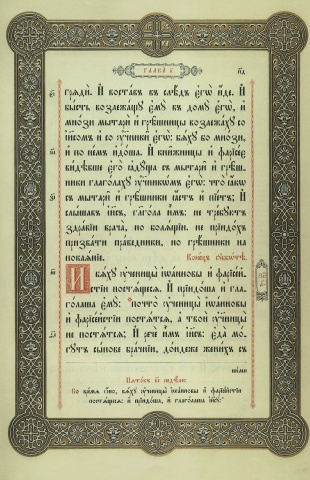 глава в҃.
гряди. И҆ воставъ въ слѣдъ є҆гѡ̀ и҆́де. И҆
бы́сть возлежа́щꙋ є҆мꙋ̀ въ домꙋ̀ є҆гѡ̀, и҆
мно́зи мытарѝ и҆ грѣ̑шницы возлежа́хꙋ со
і҆и҃сомъ и҆ со ᲂу҆ченики̑ є҆гѡ̀: бѧ́хꙋ бо мно́зи,
и҆ по не́мъ и҆до́ша. И҆ кни́жницы и҆ фарїсе́є
ви́дѣвше є҆го̀ ꙗ҆дꙋ́ща съ мытарѝ и҆ грѣ̑ш-
ники глаго́лахꙋ ᲂу҆ченикѡ́мъ є҆гѡ̀: что̀ ꙗ҆́кѡ
съ мытарѝ и҆ грѣ̑шники ꙗ҆́стъ и҆ пїе́тъ; И҆
слы́шавъ і҆и҃съ, глаго́ла и҆̀мъ: не тре́бꙋютъ
здра́вїи врача̀, но болѧ́щїи. не прїидо́хъ
призва́ти пра́вєдники, но грѣ̑шники на
покаѧ́нїе.
Коне́цъ сꙋббѡ́тѣ.
И҆ бѧ́хꙋ ᲂу҆ченицы̀ і҆ѡа́ннѡвы и҆ фарїсе́й-
стїи постѧ́щесѧ. И҆ прїидо́ша и҆ гла-
го́лаша є҆мꙋ̀: почто̀ ᲂу҆ченицы̀ і҆ѡа́ннѡвы
и҆ фарїсе́йстїи постѧ́тсѧ, а҆ твоѝ ᲂу҆ченицы̀
не постѧ́тсѧ; И҆ речѐ и҆̀мъ і҆и҃съ: є҆да̀ мо́-
гꙋтъ сы́нове бра́чнїи, до́ндеже жени́хъ съ
ни́ми
Во вре́мѧ ѻ҆́но, бѧ́хꙋ ᲂу҆ченицы̀ і҆ѡа́ннѡвы и҆ фарїсе́йстїи
постѧ́щесѧ: и҆ прїидо́ша, и҆ глаго́лаша і҆и҃сꙋ: